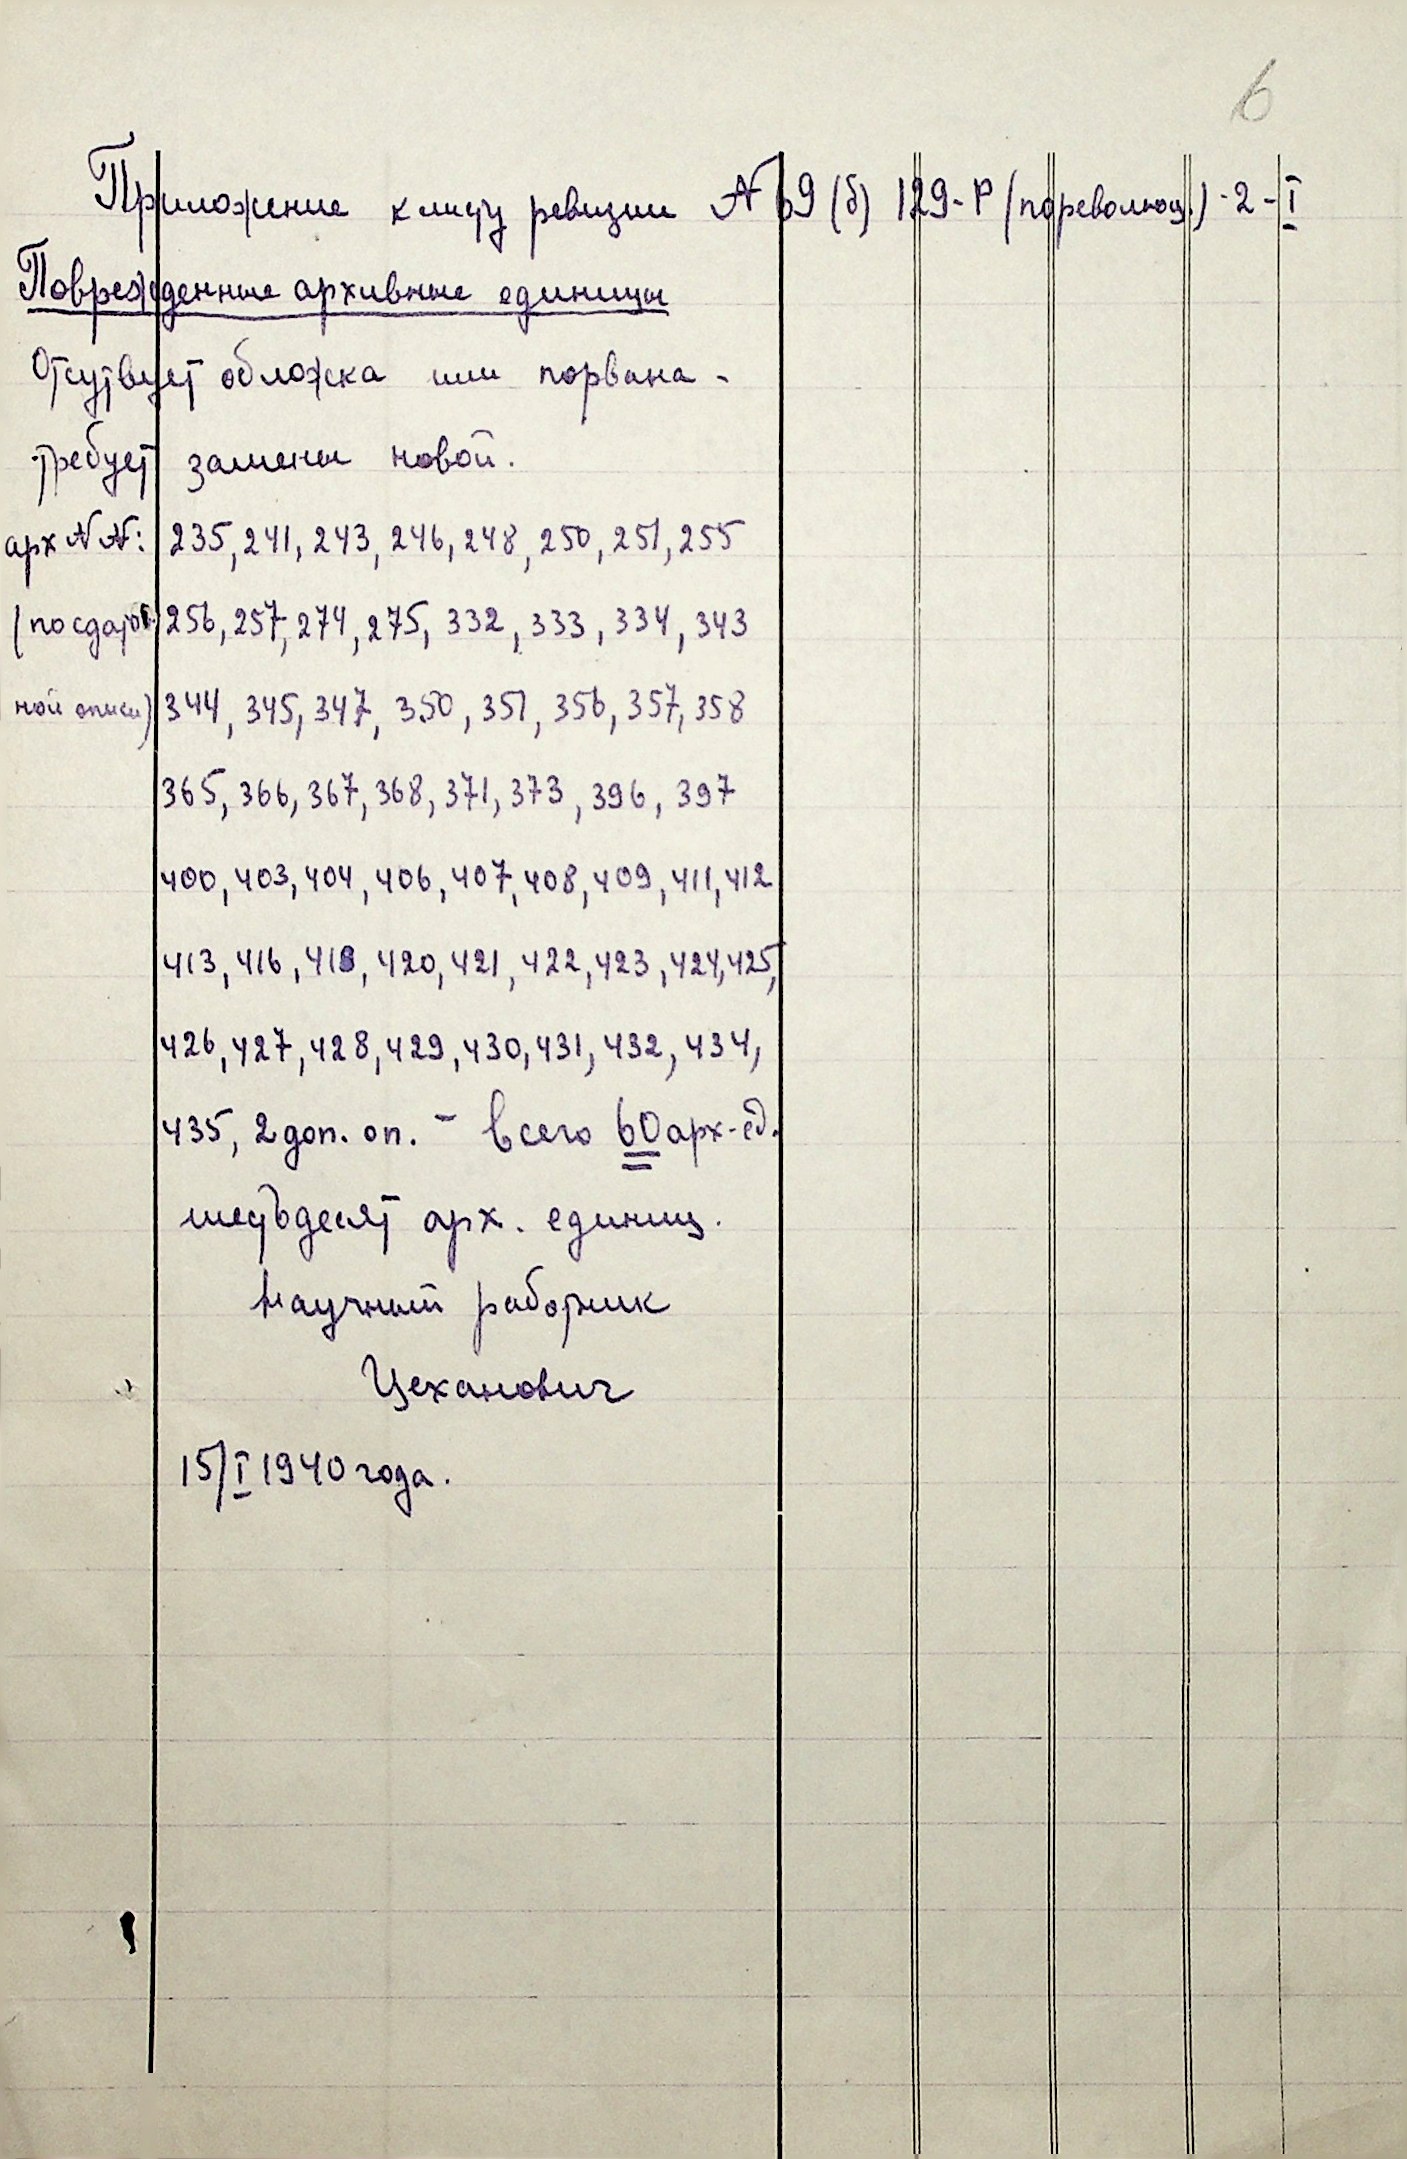 6
Приложение к листу ревизии № 69 (б) 129-Р (пореволюц.) - 2 - I
Поврежденные архивные единицы
Отсутвует обложка или порвана -
требует замены новой.
арх №№: 235, 241, 243, 246, 248, 250, 251, 255
(по сдаточ 256, 257, 274, 275, 332, 333, 334, 343
ной описи) 344, 345, 347, 350, 351, 356, 357, 358
365, 366, 367, 368, 371, 373, 396, 397
400, 403, 404, 406, 407, 408, 409, 411, 412
413, 416, 418, 420, 421, 422, 423, 424, 425,
426, 427, 428, 429, 430, 431, 432, 434,
435, 2 доп. оп. - всего 60 арх-ед.
шестьдесят арх. единиц.
Научный работник
Цеханович
15/I 1940 года.